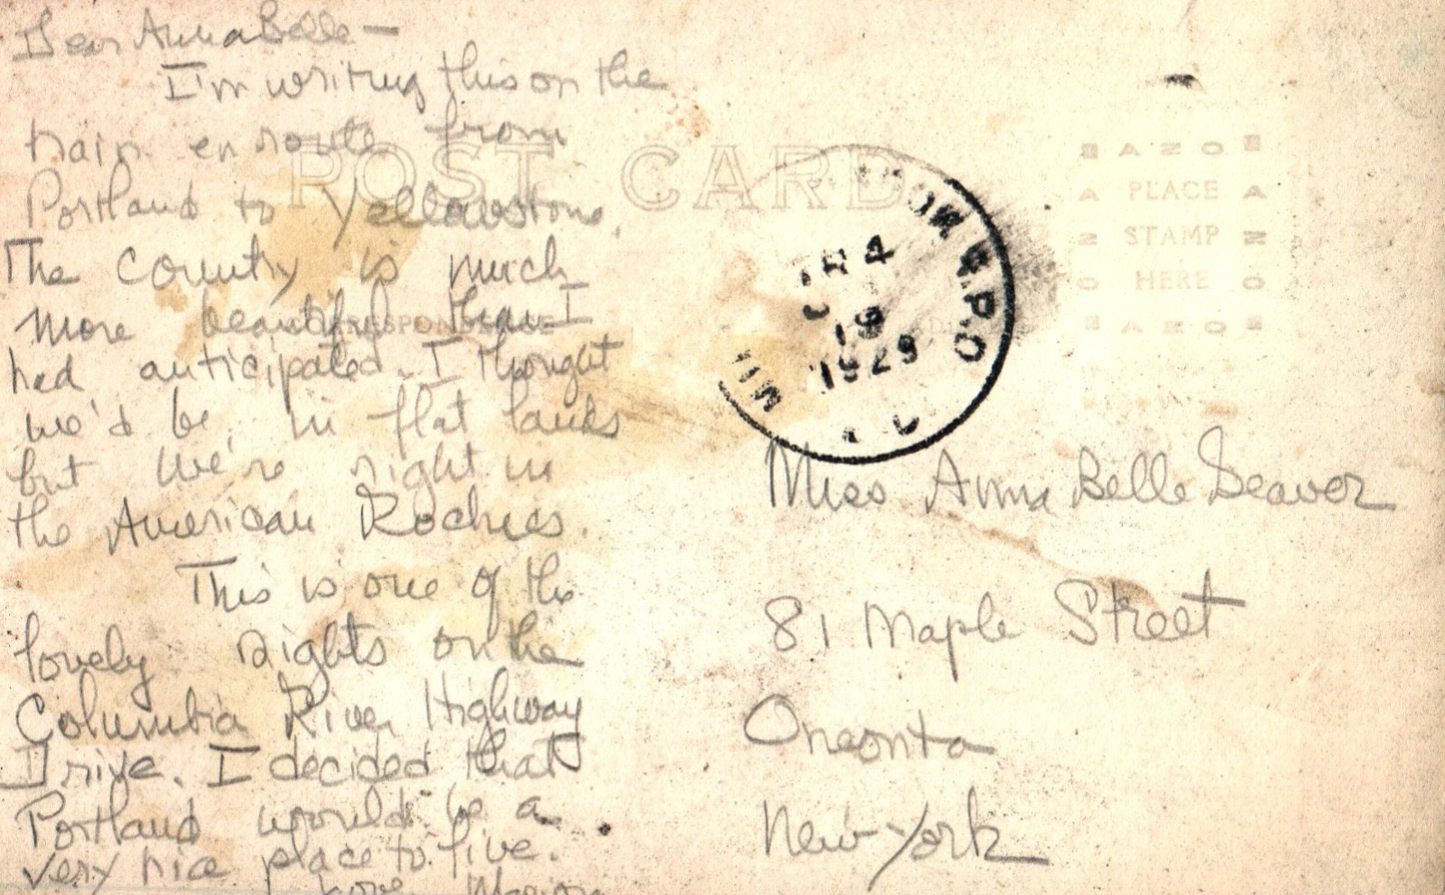 Dear AnnaBelle —
I'm writing this on the
train en route from
Portland to Yellowstone.
The country is much
more beautiful than I
had anticipated. I thought
we'd be, in flat lands
but we're right in
the American Rockies.
This is one of the
lovely sights on the
Columbia River Highway
Drive. I decided that
Portland would be a
very nice place to live.
Love, Marion
POST CARD
CORRESPONDENCE
R.P.O.
19
1929
AZO
PLACE
STAMP
HERE
AZO
Miss Anna Belle Seaver
81 Maple Street
Oneonta
New York